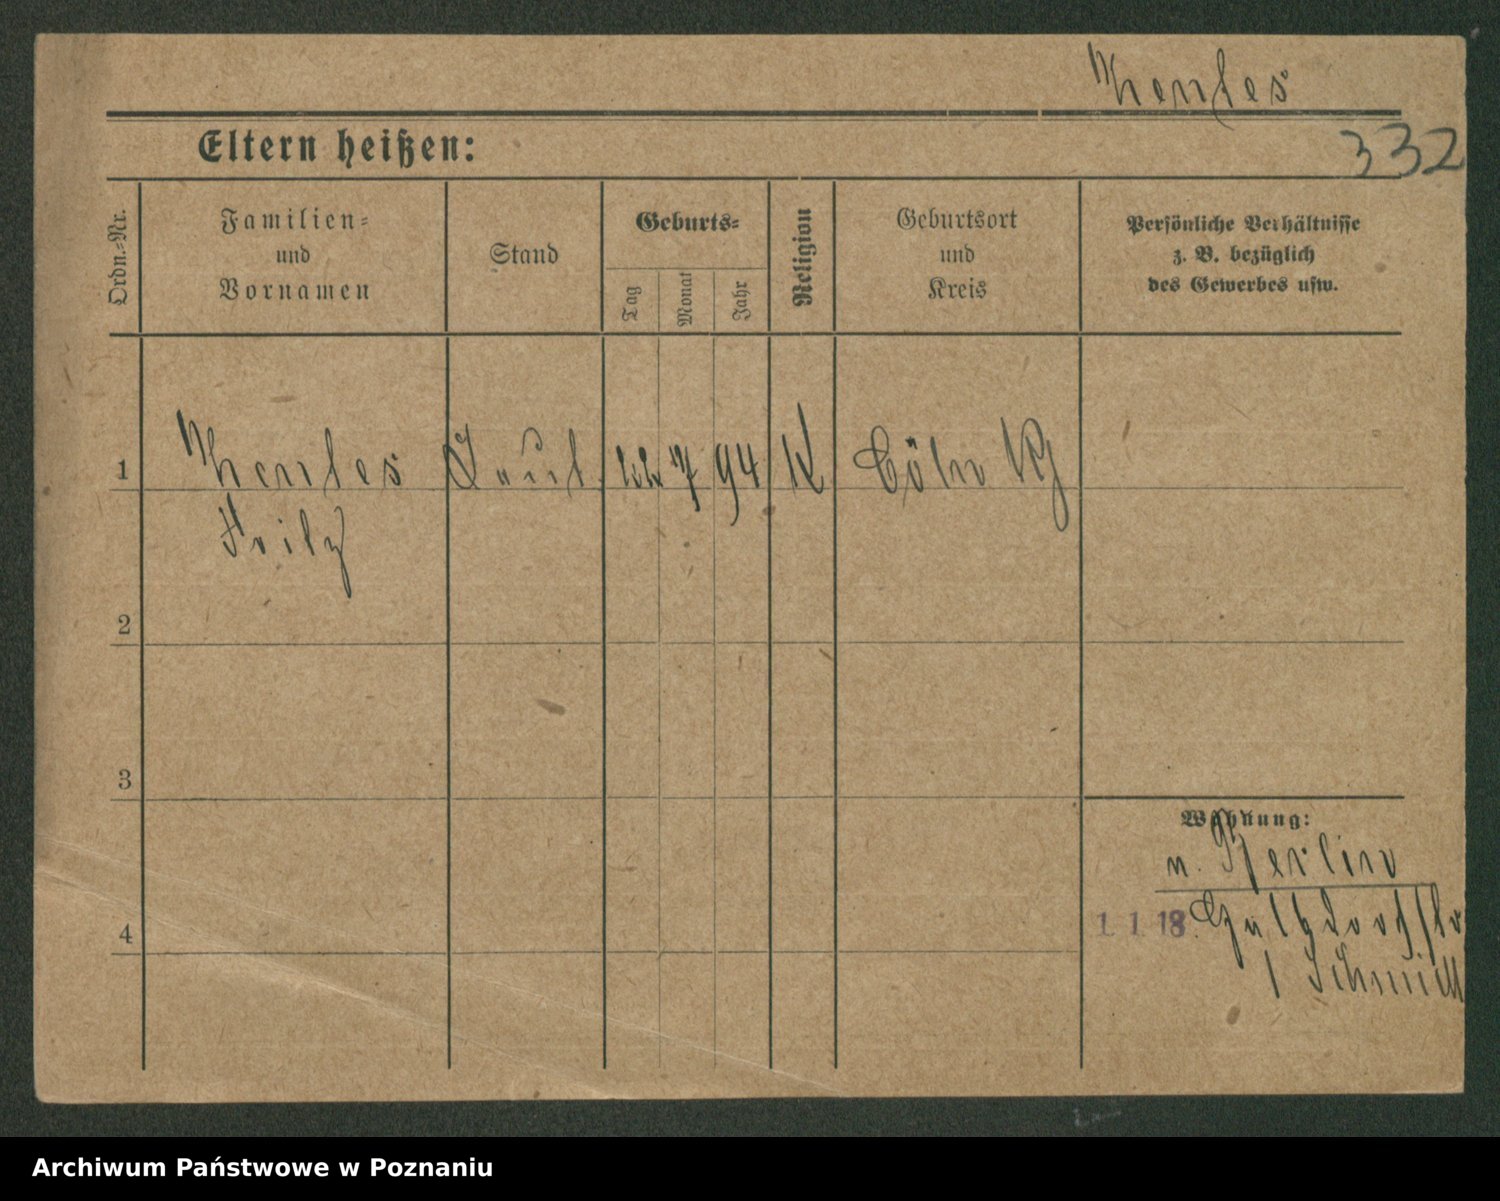 332
Eltern heißen:
Ordn.-Nr.
Familien-
und
Vornamen
Stand
Geburts-
Tag
Monat
Jahr
Religion
Geburtsort
und
Kreis
Persönliche Verhältnisse
z. B. bezüglich
des Gewerbes usw.
1
7 94 K Cöln
Fritz
2
3
4
Wohnung:
n. Berlin
1. 1. 18
Schmidt
Archiwum Państwowe w Poznaniu